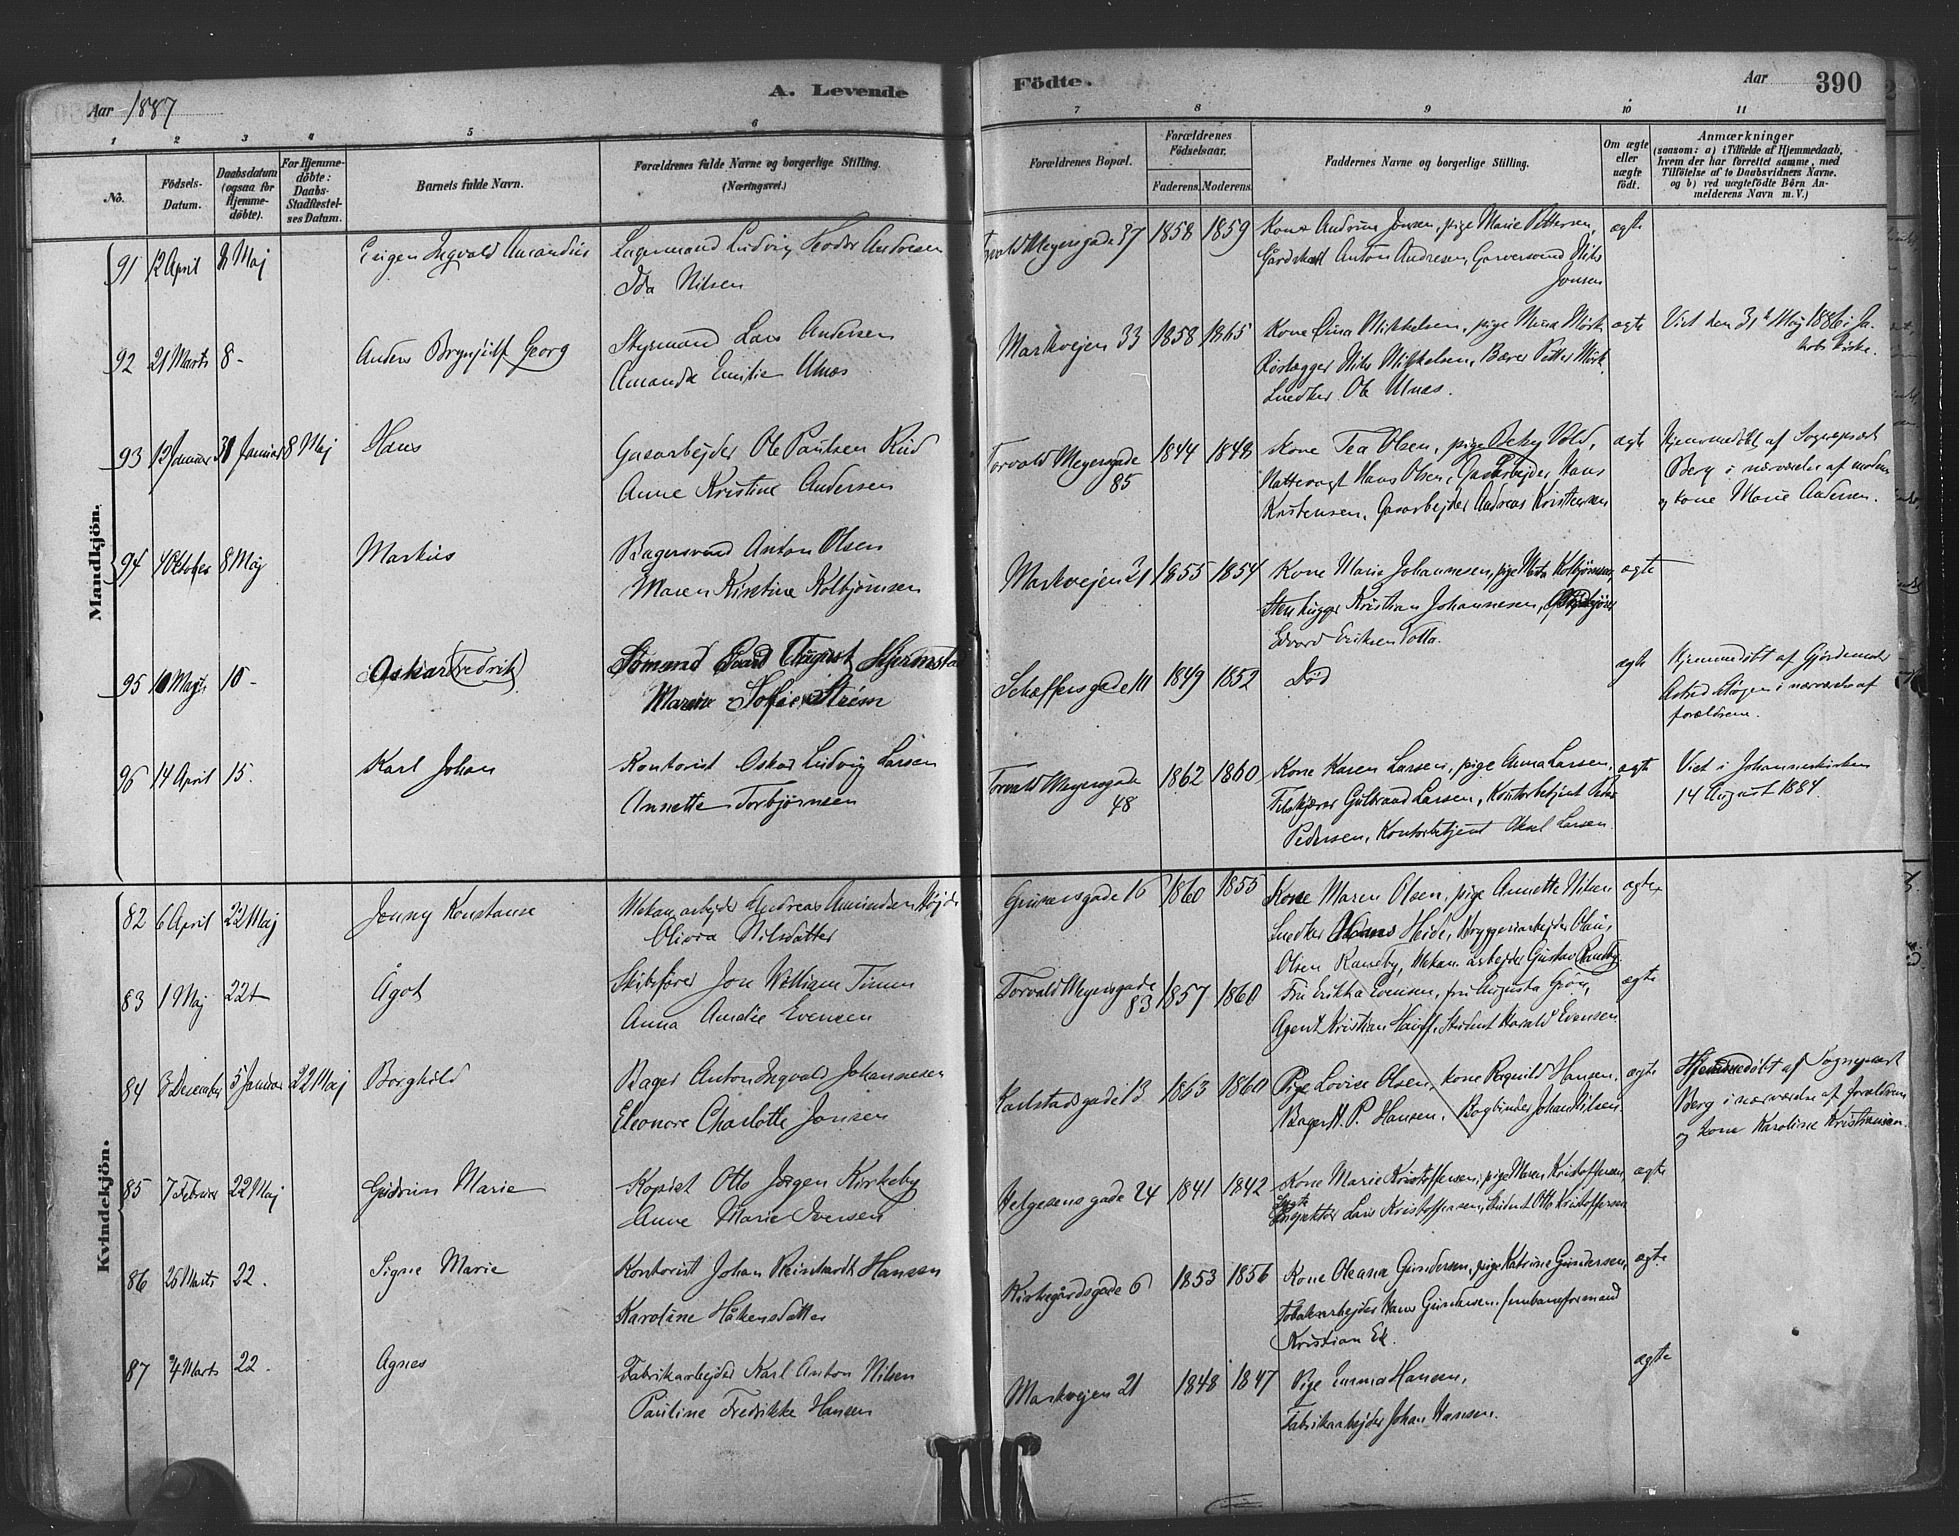 Aar 1887
A. Levende
Födte.
Aar
390
1 2 3 4 5 6 7 8 9 10 11
No.
Födsels-Datum.
Daabsdatum (ogsaa for Hjemmedöbte).
For Hjemmedöbte: Daabs-Stadfæstelses Datum.
Barnets fulde Navn.
Forældrenes fulde Navne og borgerlige Stilling.
(Næringsvei.)
Forældrenes Bopæl.
Forældrenes Födselsaar.
Faderens. Moderens.
Faddernes Navne og borgerlige Stilling.
Om ægte eller uægte födt.
Anmærkninger
(saasom: a) i Tilfælde af Hjemmedaab, hvem der har forrettet samme, med Tilföielse af to Daabsvidners Navne. og b) ved uægtefödte Börn Anmelderens Navn m.V.)
Mandkjön.
91 12 April 8 Maj Eugen Ingvald Amandus Ludvig Teodor Andresen
Ida Nilsen
Torvald Meyersgade 37 1858 1859 Kone Andrine Jonsen, pige Marie Pettersen, ægte
Anton Andresen, Garversvend Nils
Jonsen
92 21 Marts 8 - Anders Brynjulf Georg Styrmand Lars Andersen
Amanda Emilie Ulnæs
Markvejen 33 1858 1865 Kone Dina Mikkelsen, pige Mina Mörk ægte Viet den 31te Maj 1886 i Ja-
kobs kirke.
Rørlægger Nils Mikkelsen, Bærer Petter Mörk
Snedker Ole Ulnæs.
93 12 Januar 31 Januar 8 Maj Hans Gasarbejder Ole Paulsen Rud
Anne Kristine Andersen
Torvald Meyersgade
85
1844 1848 Kone Tea Olsen, pige Vold, ægte Hjemmedöbt af Sogneprest
Berg i nærværelse af moderen
og kone Marie Andersen.
Nattevagt Hans Olsen, Gasarbejder Hans
Kristensen, Gasarbejder Andreas Kristensen
94 4 Oktober 8 Maj Markus Bagersvend Anton Olsen
Maren Kristine Kolbjørnsen
Markvejen 21 1855 1854 Kone Marie Johannesen, pige Kolbjørnsen, ægte
Stenhugger Kristian Johannesen,
Edvard Eriksen
95 10 Maj 10 - Oskar (Fredrik) Sømand August Hjermsta
Marie Sofie Strøm
Schæffersgade 11 1849 1852 Død ægte Hjemmedöbt af Gjordemoder
i nærværelse af
forældrene.
96 14 April 15. Karl Johan Kontorist Oskar Ludvig Larsen
Annette Torbjørnsen
Torvald Meyersgade
48
1862 1860 Kone Karen Larsen, pige Anna Larsen, ægte Viet i Johanneskirken
14 August 1884
Gulbrand Larsen, Kontorbetjent Peder
Pedersen, Kontorbetjent Aksel Larsen.
Kvindekjön.
82 6 April 22 Maj Jenny Konstanse Mekan. arbejder Andreas Amundsen
Olivia Nilsdatter
Grünersgade 16 1860 1855 Kone Maren Olsen, pige Annette Nilsen ægte
Snedker Hans Heide, Bryggeriarbejder Olaus
Olsen Raneby, Mekan. arbejder Gustav Raneby.
83 1 Maj 22 Ågot Skibsfører Jon William Timm
Anna Amalie Evensen
Torvald Meyersgade
83
1857 1860 Fru Erikka Evensen, fru Augusta Grön, ægte
Agent Kristian Hauff, Student Harald Evensen
84 3 December 5 Januar 22 Maj Borghild Bager Anton Ingvald Johannesen
Eleonore Charlotte Jonsen
Karlstadsgade 13 1863 1860 Pige Lovise Olsen, kone Ragnild Hansen, ægte Hjemmedöbt af Sogneprest
Berg i nærværelse af forældrene
og kone Karoline Kristiansen.
Bager H. P. Hansen, Bogbinder Johan Nilsen.
85 7 Februar 22 Maj Gudrun Marie Kopist Otto Jørgen Kirkeby
Anne Marie Iversen
Helgesensgade 24 1841 1842 Kone Marie Kristoffersen, pige Maren Kristoffersen, ægte
Inspektør Lars Kristoffersen, Student Otto Kristoffersen
86 26 Marts 22. Signe Marie Kontorist Johan Reinhardt Hansen
Karoline Håkensdatter
Kirkegårdsgade 6 1853 1856 Kone Oleana Gundersen, pige Katrine Gundersen, ægte
Tobaksarbejder Hans Gundersen. Jernbaneformand
Kristian Ek.
87 4 Marts 22. Agnes Fabrikarbejder Karl Anton Nilsen
Pauline Fredrikke Hansen
Markvejen 21 1848 1847 Pige Emma Hansen, ægte
Fabrikarbejder Johan Hansen.